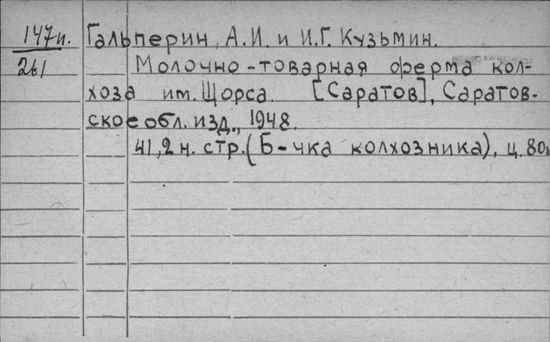 147н. Гальперин, А.И. и И.Г. Кузьмин.
261 Молочно-товарная ферма кол-
хоза им. Щорса. [Саратов], Саратов-
ское обл. изд., 1948.
41,2 н. стр. (Б-чка колхозника), ц. 80